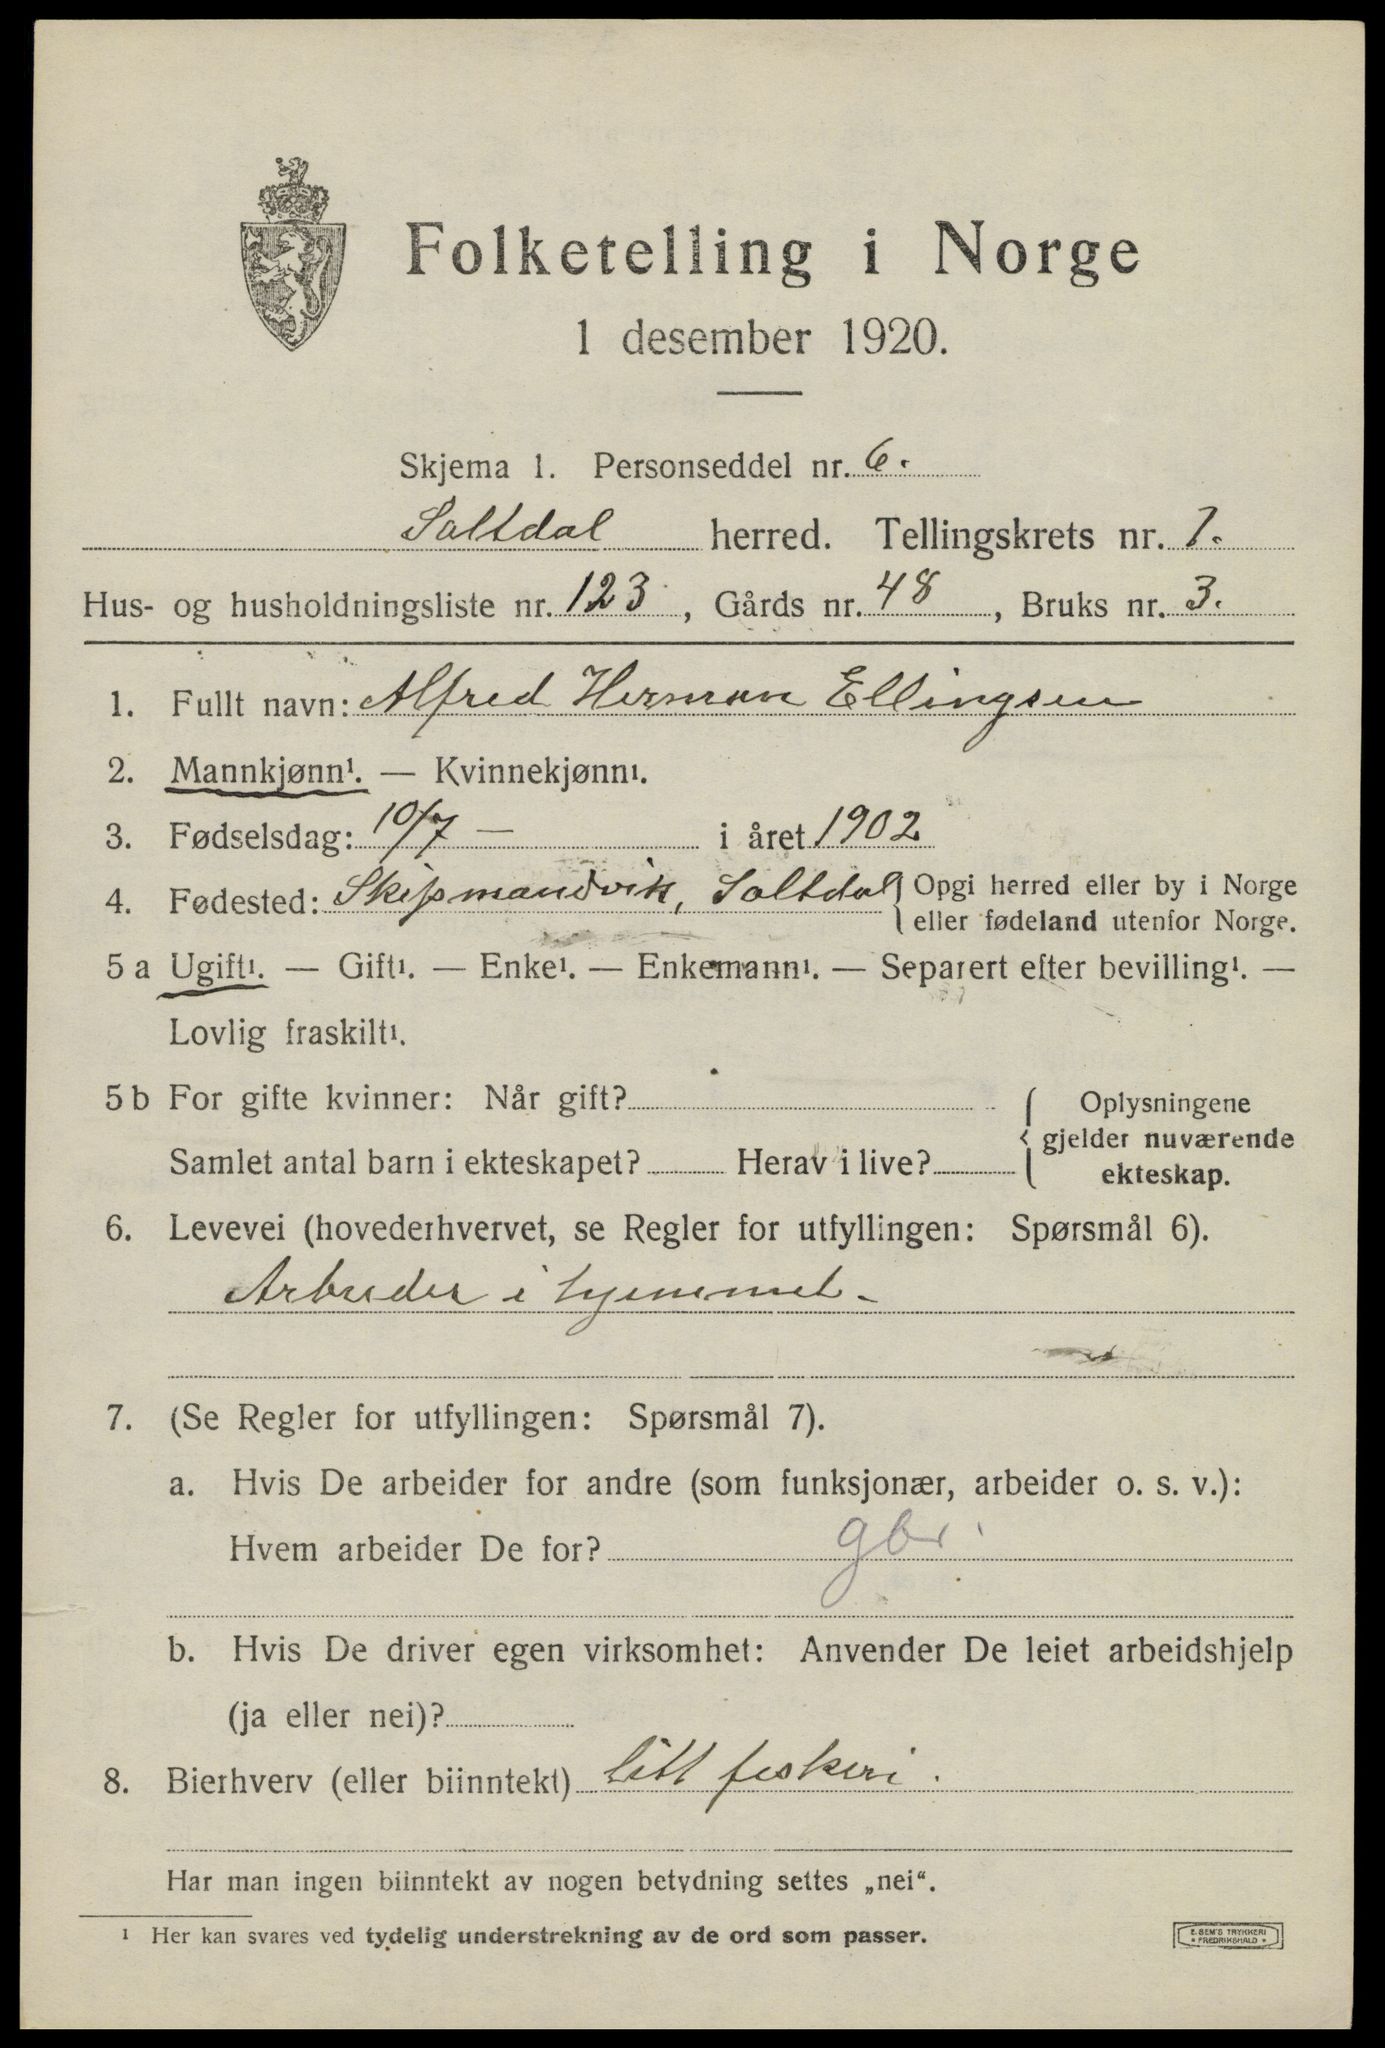 Folketelling i Norge
1 desember 1920.
Skjema 1. Personseddel nr. 6.
Saltdal herred. Tellingskrets nr. 7.
Hus- og husholdningsliste nr. 123, Gårds nr. 48, Bruks nr. 3.
1. Fullt navn: Alfred Herman Ellingsen
2. Mannkjønn¹. — Kvinnekjønn¹.
3. Fødselsdag: 10/7 — i året 1902
4. Fødested: Skipmandvik, Saltdal { Opgi herred eller by i Norge
eller fødeland utenfor Norge.
5 a Ugift¹. — Gift¹. — Enke¹. — Enkemann¹. — Separert efter bevilling¹. —
Lovlig fraskilt¹.
5 b For gifte kvinner: Når gift?
Samlet antal barn i ekteskapet? Herav i live?
{ Oplysningene
gjelder nuværende
ekteskap.
6. Levevei (hovederhvervet, se Regler for utfyllingen: Spørsmål 6).
Arbeider i hjemmet.
7. (Se Regler for utfyllingen: Spørsmål 7).
a. Hvis De arbeider for andre (som funksjonær, arbeider o. s. v.):
Hvem arbeider De for? gbr.
b. Hvis De driver egen virksomhet: Anvender De leiet arbeidshjelp
(ja eller nei)?
8. Bierhverv (eller biinntekt) litt fiskeri.
Har man ingen biinntekt av nogen betydning settes „nei“.
¹ Her kan svares ved tydelig understrekning av de ord som passer.
E. SEM'S TRYKKERI
FREDRIKSHALD